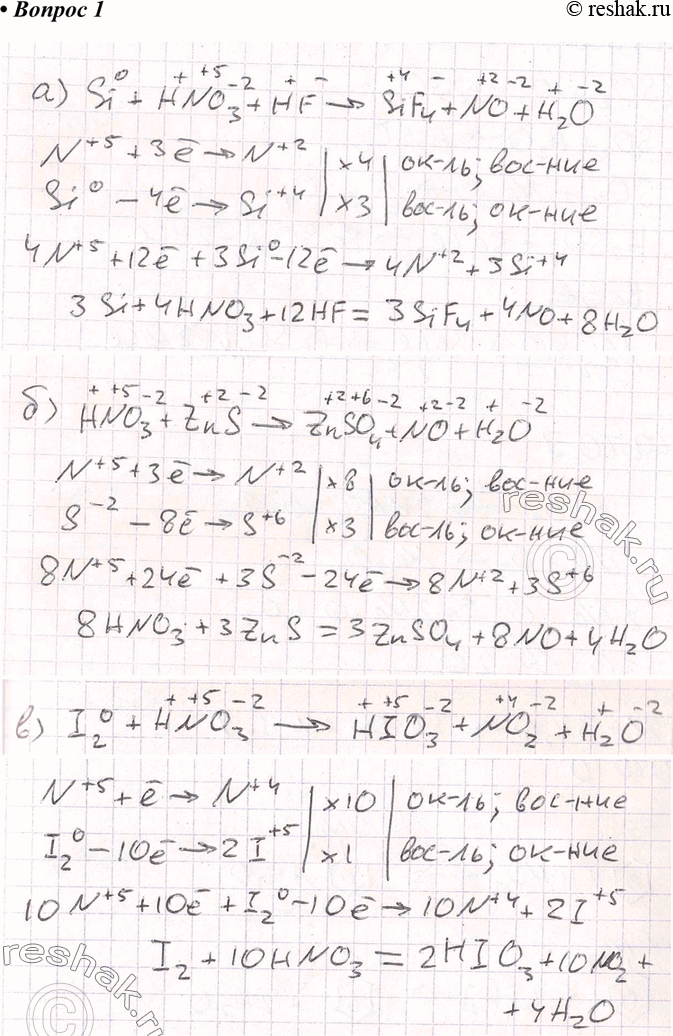 • Вопрос 1
© reshak.ru
а) Si⁰ + H⁺N⁺⁵O₃⁻² + H⁺F⁻ → Si⁺⁴F₄⁻ + N⁺²O⁻² + H₂⁺O⁻²
N⁺⁵ + 3ē → N⁺² | ×4 | ок-ль; вос-ние
Si⁰ − 4ē → Si⁺⁴ | ×3 | вос-ль; ок-ние
4N⁺⁵ + 12ē + 3Si⁰ − 12ē → 4N⁺² + 3Si⁺⁴
3Si + 4HNO₃ + 12HF = 3SiF₄ + 4NO + 8H₂O
б) H⁺N⁺⁵O₃⁻² + Zn⁺²S⁻² → Zn⁺²S⁺⁶O₄⁻² + N⁺²O⁻² + H₂⁺O⁻²
N⁺⁵ + 3ē → N⁺² | ×8 | ок-ль; вос-ние
S⁻² − 8ē → S⁺⁶ | ×3 | вос-ль; ок-ние
8N⁺⁵ + 24ē + 3S⁻² − 24ē → 8N⁺² + 3S⁺⁶
8HNO₃ + 3ZnS = 3ZnSO₄ + 8NO + 4H₂O
в) I₂⁰ + H⁺N⁺⁵O₃⁻² → H⁺I⁺⁵O₃⁻² + N⁺⁴O₂⁻² + H₂⁺O⁻²
N⁺⁵ + ē → N⁺⁴ | ×10 | ок-ль; вос-ние
I₂⁰ − 10ē → 2I⁺⁵ | ×1 | вос-ль; ок-ние
10N⁺⁵ + 10ē + I₂⁰ − 10ē → 10N⁺⁴ + 2I⁺⁵
I₂ + 10HNO₃ = 2HIO₃ + 10NO₂ +
+ 4H₂O
reshak.ru
©
reshak.ru
©